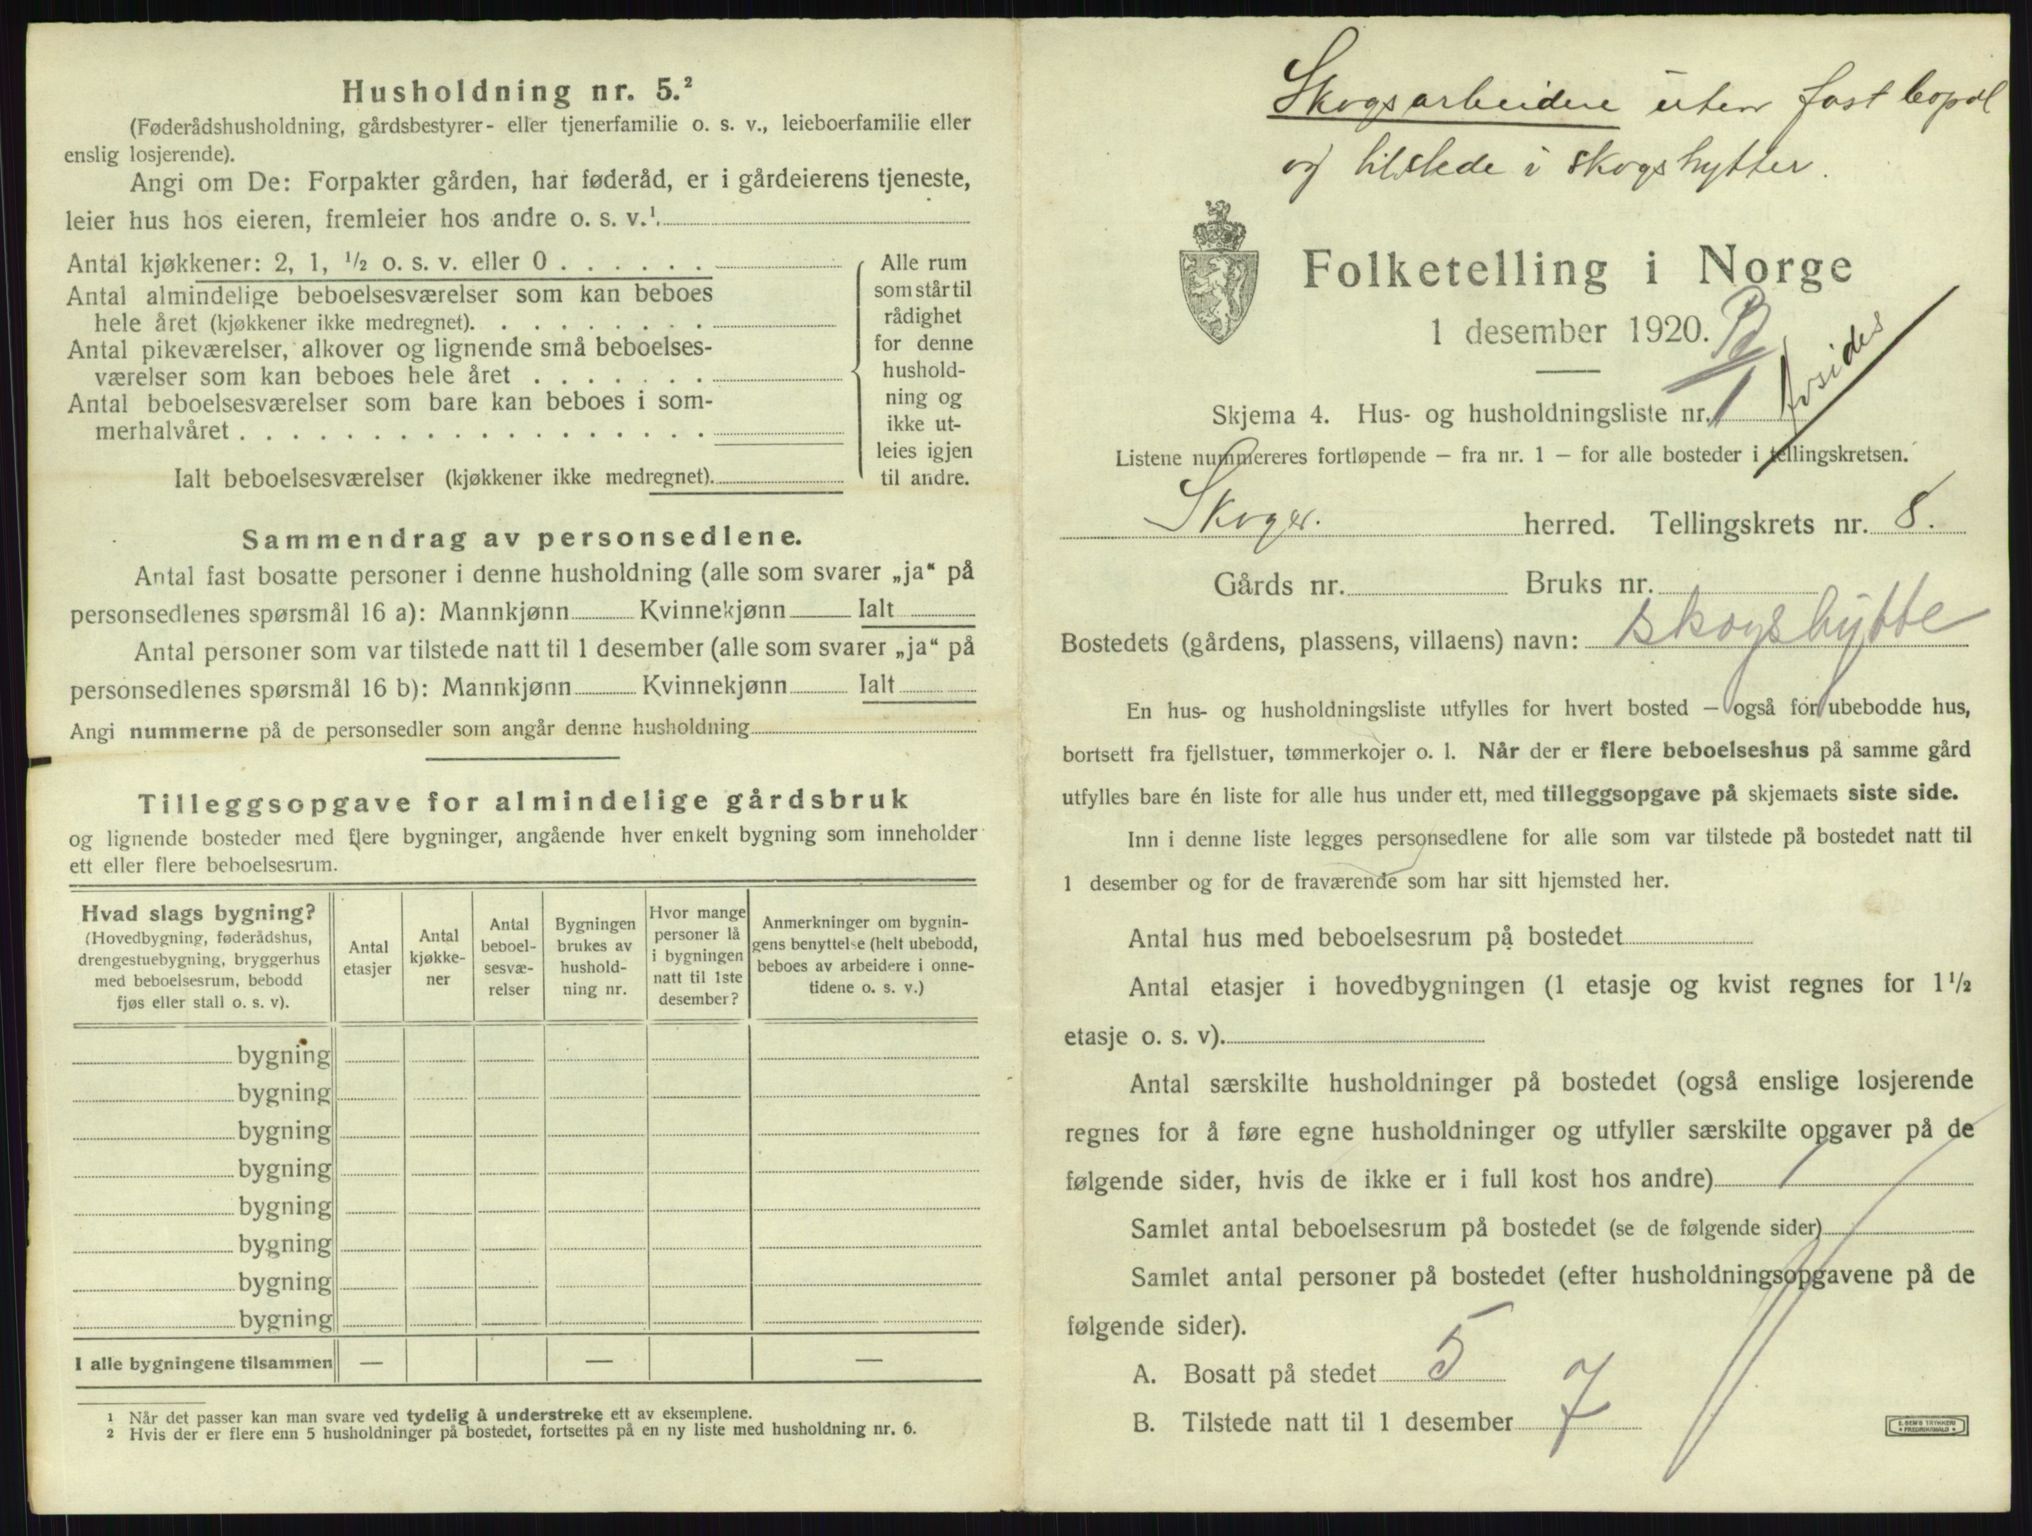 Husholdning nr. 5.²
(Føderådshusholdning, gårdsbestyrer- eller tjenerfamilie o. s. v., leieboerfamilie eller
enslig losjerende).
Angi om De: Forpakter gården, har føderåd, er i gårdeierens tjeneste,
leier hus hos eieren, fremleier hos andre o. s. v.¹
Antal kjøkkener: 2, 1, ½ o. s. v. eller 0 . . . . . .
Antal almindelige beboelsesværelser som kan beboes
hele året (kjøkkener ikke medregnet). . . . . . . . .
Antal pikeværelser, alkover og lignende små beboelses-
værelser som kan beboes hele året . . . . . . .
Antal beboelsesværelser som bare kan beboes i som-
merhalvåret . . . . . . . . . . . . . . . . . .
Ialt beboelsesværelser (kjøkkener ikke medregnet).
Alle rum
som står til
rådighet
for denne
hushold-
ning og
ikke ut-
leies igjen
til andre.
Sammendrag av personsedlene.
Antal fast bosatte personer i denne husholdning (alle som svarer „ja“ på
personsedlenes spørsmål 16 a): Mannkjønn Kvinnekjønn Ialt
Antal personer som var tilstede natt til 1 desember (alle som svarer „ja“ på
personsedlenes spørsmål 16 b): Mannkjønn Kvinnekjønn Ialt
Angi nummerne på de personsedler som angår denne husholdning
Tilleggsopgave for almindelige gårdsbruk
og lignende bosteder med flere bygninger, angående hver enkelt bygning som inneholder
ett eller flere beboelsesrum.
Hvad slags bygning?
(Hovedbygning, føderådshus,
drengestuebygning, bryggerhus
med beboelsesrum, bebodd
fjøs eller stall o. s. v).
Antal
etasjer
Antal
kjøkke-
ner
Antal
beboel-
sesvæ-
relser
Bygningen
brukes av
hushold-
ning nr.
Hvor mange
personer lå
i bygningen
natt til 1ste
desember?
Anmerkninger om bygnin-
gens benyttelse (helt ubebodd,
beboes av arbeidere i onne-
tidene o. s. v.)
bygning
bygning
bygning
bygning
bygning
bygning
bygning
bygning
I alle bygningene tilsammen — — —
¹ Når det passer kan man svare ved tydelig å understreke ett av eksemplene.
² Hvis der er flere enn 5 husholdninger på bostedet, fortsettes på en ny liste med husholdning nr. 6.
Skogsarbeidere uten fast bopel
og tilstede i skogshytter.
Folketelling i Norge
1 desember 1920.
Skjema 4. Hus- og husholdningsliste nr. 1
Listene nummereres fortløpende – fra nr. 1 – for alle bosteder i tellingskretsen.
Skoger. herred. Tellingskrets nr. 8.
Gårds nr. Bruks nr.
Bostedets (gårdens, plassens, villaens) navn: skogshytte
En hus- og husholdningsliste utfylles for hvert bosted – også for ubebodde hus,
bortsett fra fjellstuer, tømmerkojer o. l. Når der er flere beboelseshus på samme gård
utfylles bare én liste for alle hus under ett, med tilleggsopgave på skjemaets siste side.
Inn i denne liste legges personsedlene for alle som var tilstede på bostedet natt til
1 desember og for de fraværende som har sitt hjemsted her.
Antal hus med beboelsesrum på bostedet
Antal etasjer i hovedbygningen (1 etasje og kvist regnes for 1 ½
etasje o. s. v).
Antal særskilte husholdninger på bostedet (også enslige losjerende
regnes for å føre egne husholdninger og utfyller særskilte opgaver på de
følgende sider, hvis de ikke er i full kost hos andre) 1
Samlet antal beboelsesrum på bostedet (se de følgende sider)
Samlet antal personer på bostedet (efter husholdningsopgavene på de
følgende sider).
A. Bosatt på stedet 5
B. Tilstede natt til 1 desember 7
E. SEM'S TRYKKERI
FREDRIKSHALD